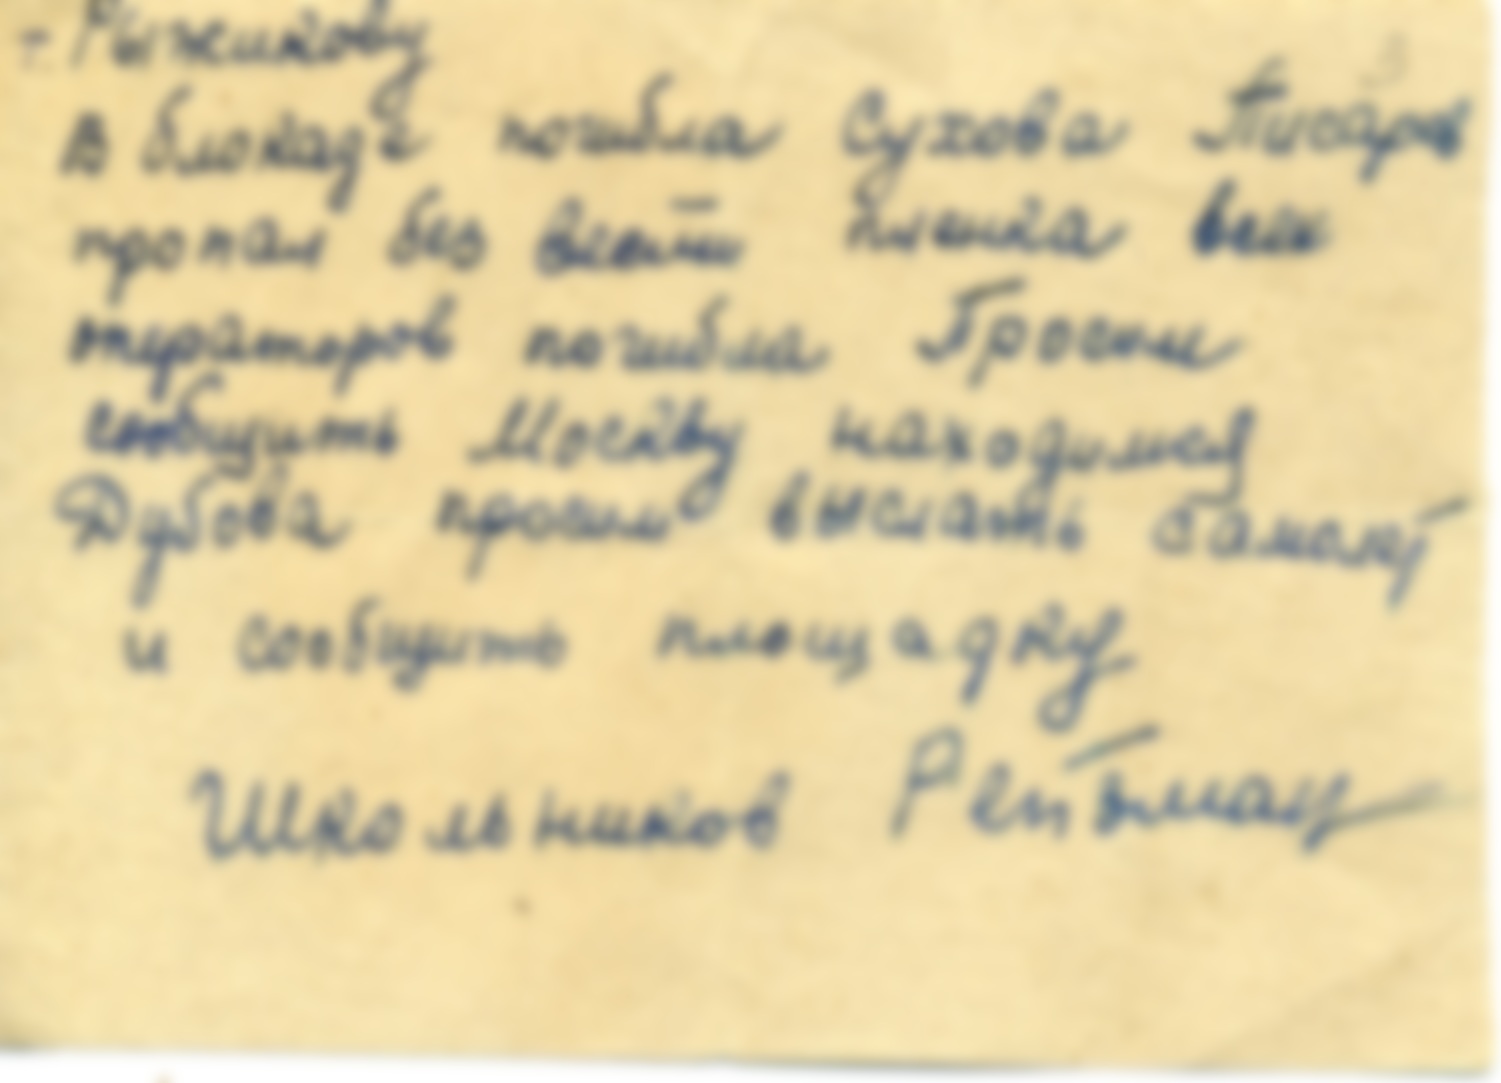 т. Рыжикову
В блокаде погибла Сухова Писарев
пропал без вести пленка всех
операторов погибла Просим
сообщить Москву находимся
Дубова просим выслать самолет
и сообщить площадку
Школьников Рейзман